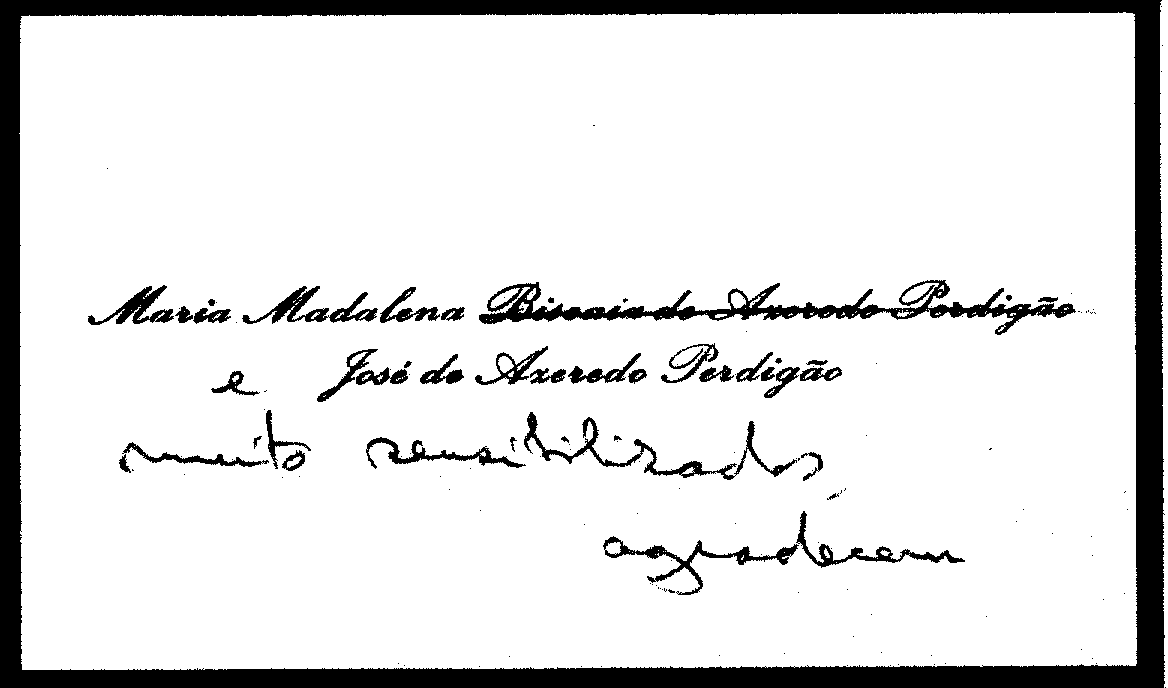 Maria Madalena Biscaia de Azeredo Perdigão
e José de Azeredo Perdigão
muito sensibilizados,
agradecem